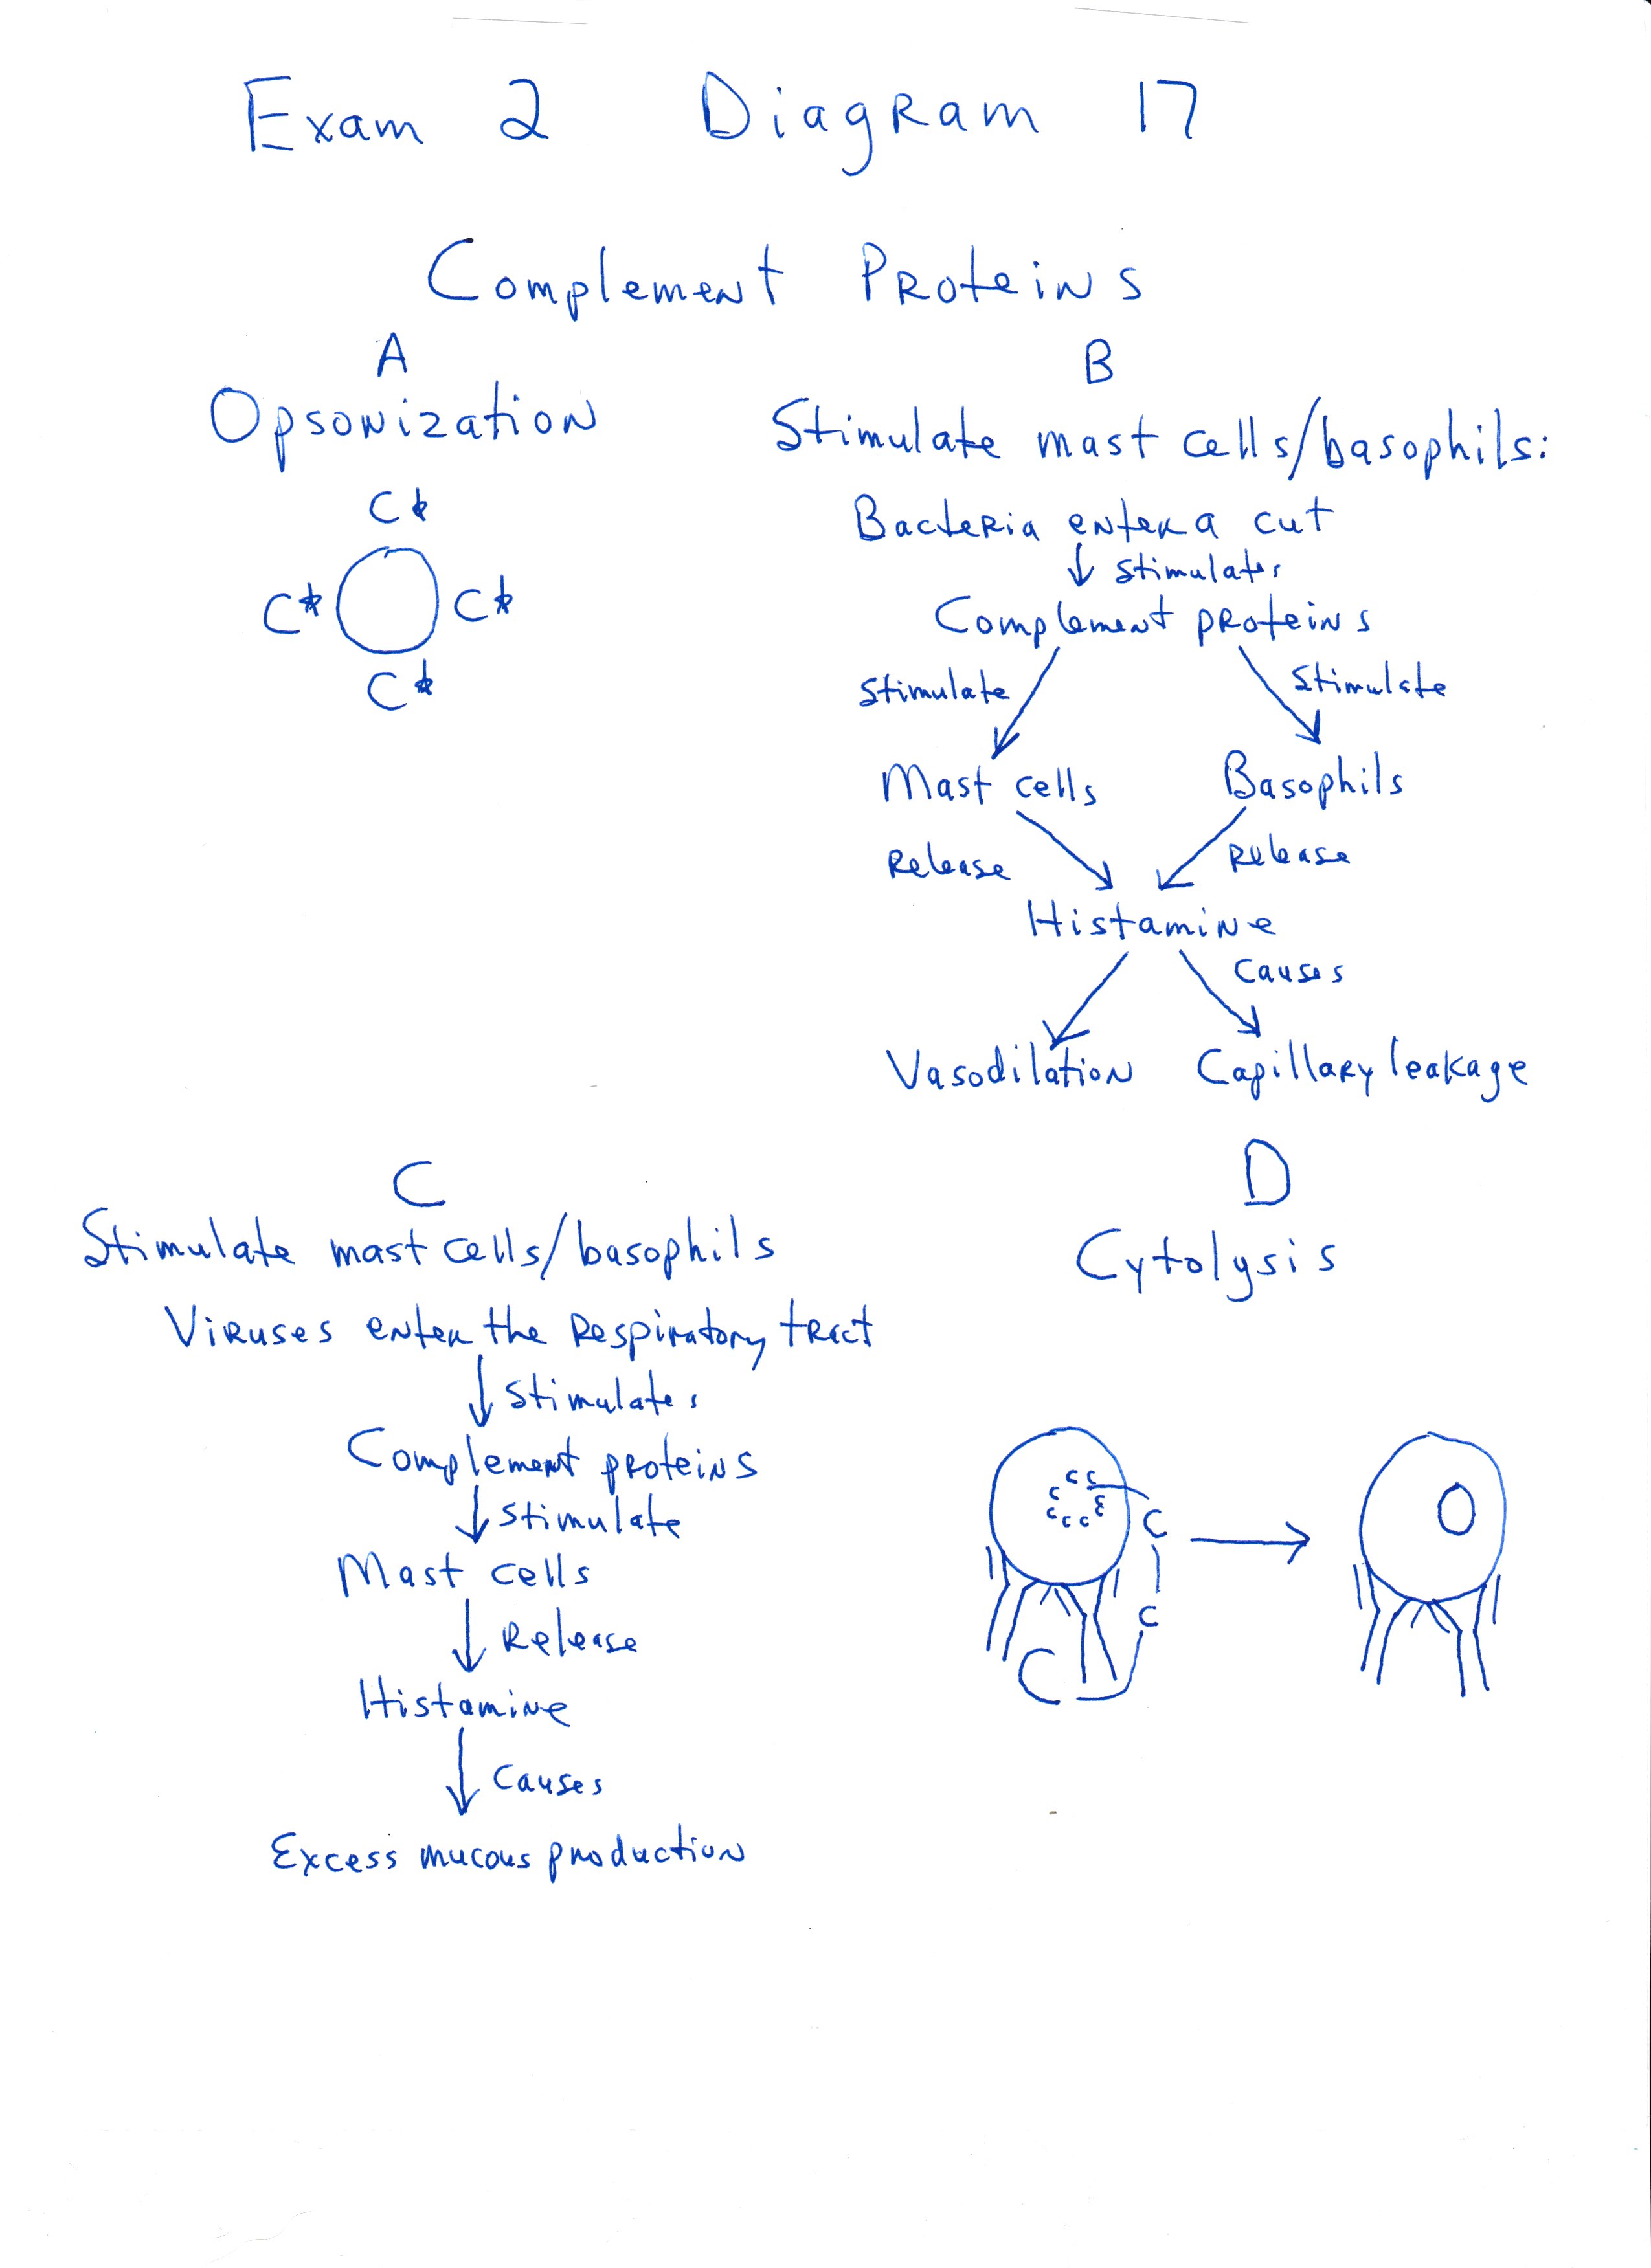 Exam 2 Diagram 17
Complement Proteins
A
Opsonization
C*
C* C*
C*
B
Stimulate mast cells/basophils:
Bacteria enter a cut
stimulates
Complement proteins
stimulate stimulate
Mast cells Basophils
Release Release
Histamine
causes
Vasodilation Capillary leakage
C
Stimulate mast cells/basophils
Viruses enter the Respiratory tract
stimulates
Complement proteins
stimulate
Mast cells
Release
Histamine
causes
Excess mucous production
D
Cytolysis
c c
c c
c c c
C
C
C